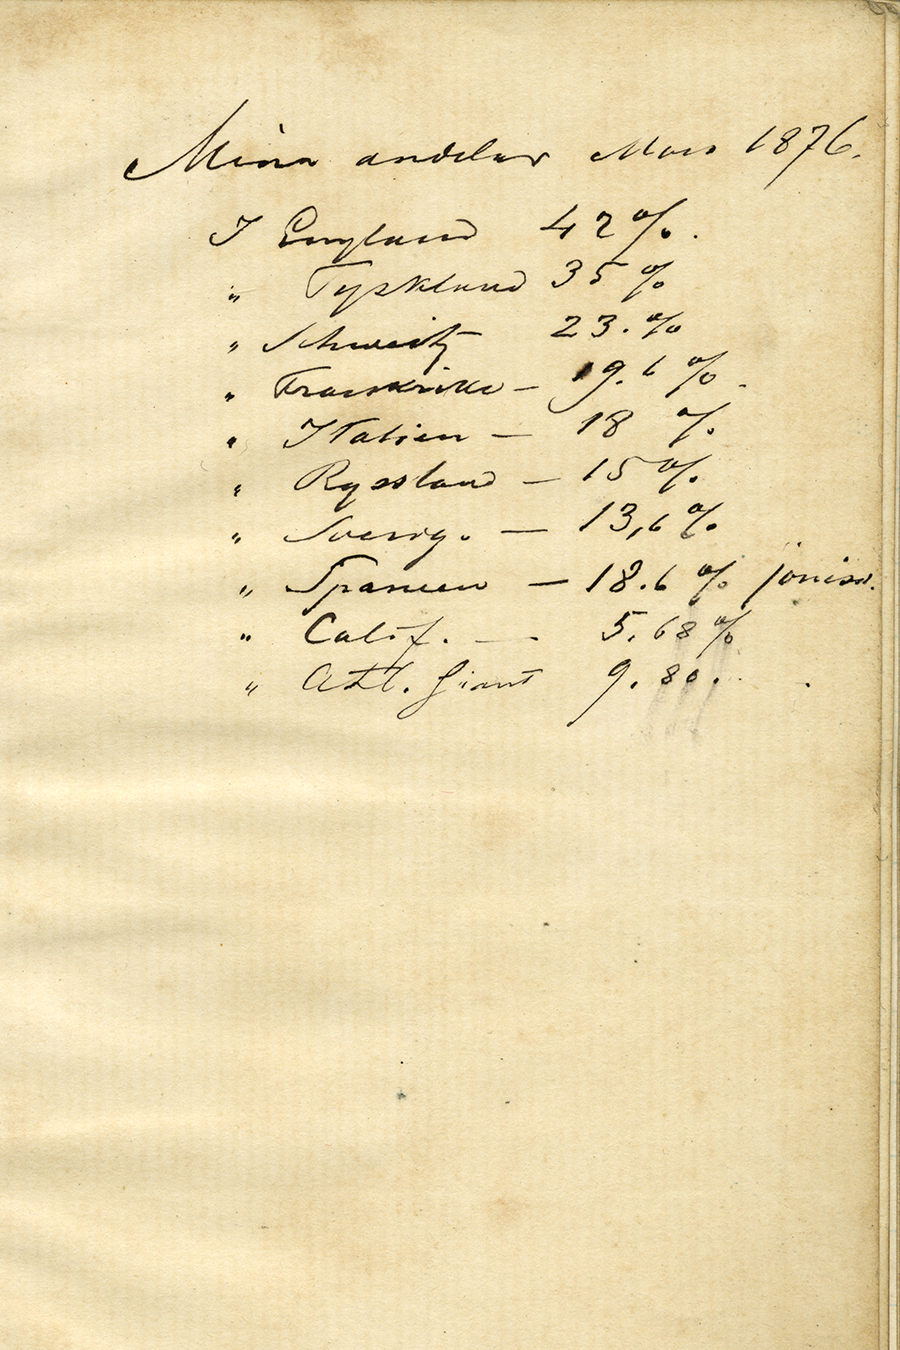 Mina andelar Mars 1876.
I England 42%.
" Tyskland 35%
" Schweitz 23.%
" Frankrike – 19.6%.
" Italien – 18 %
" Ryssland – 15%.
" Sverige. – 13,6%
" Spanien – 18.6 %
" Calif. — . 5.68%
" Atl. Giant 9.80.